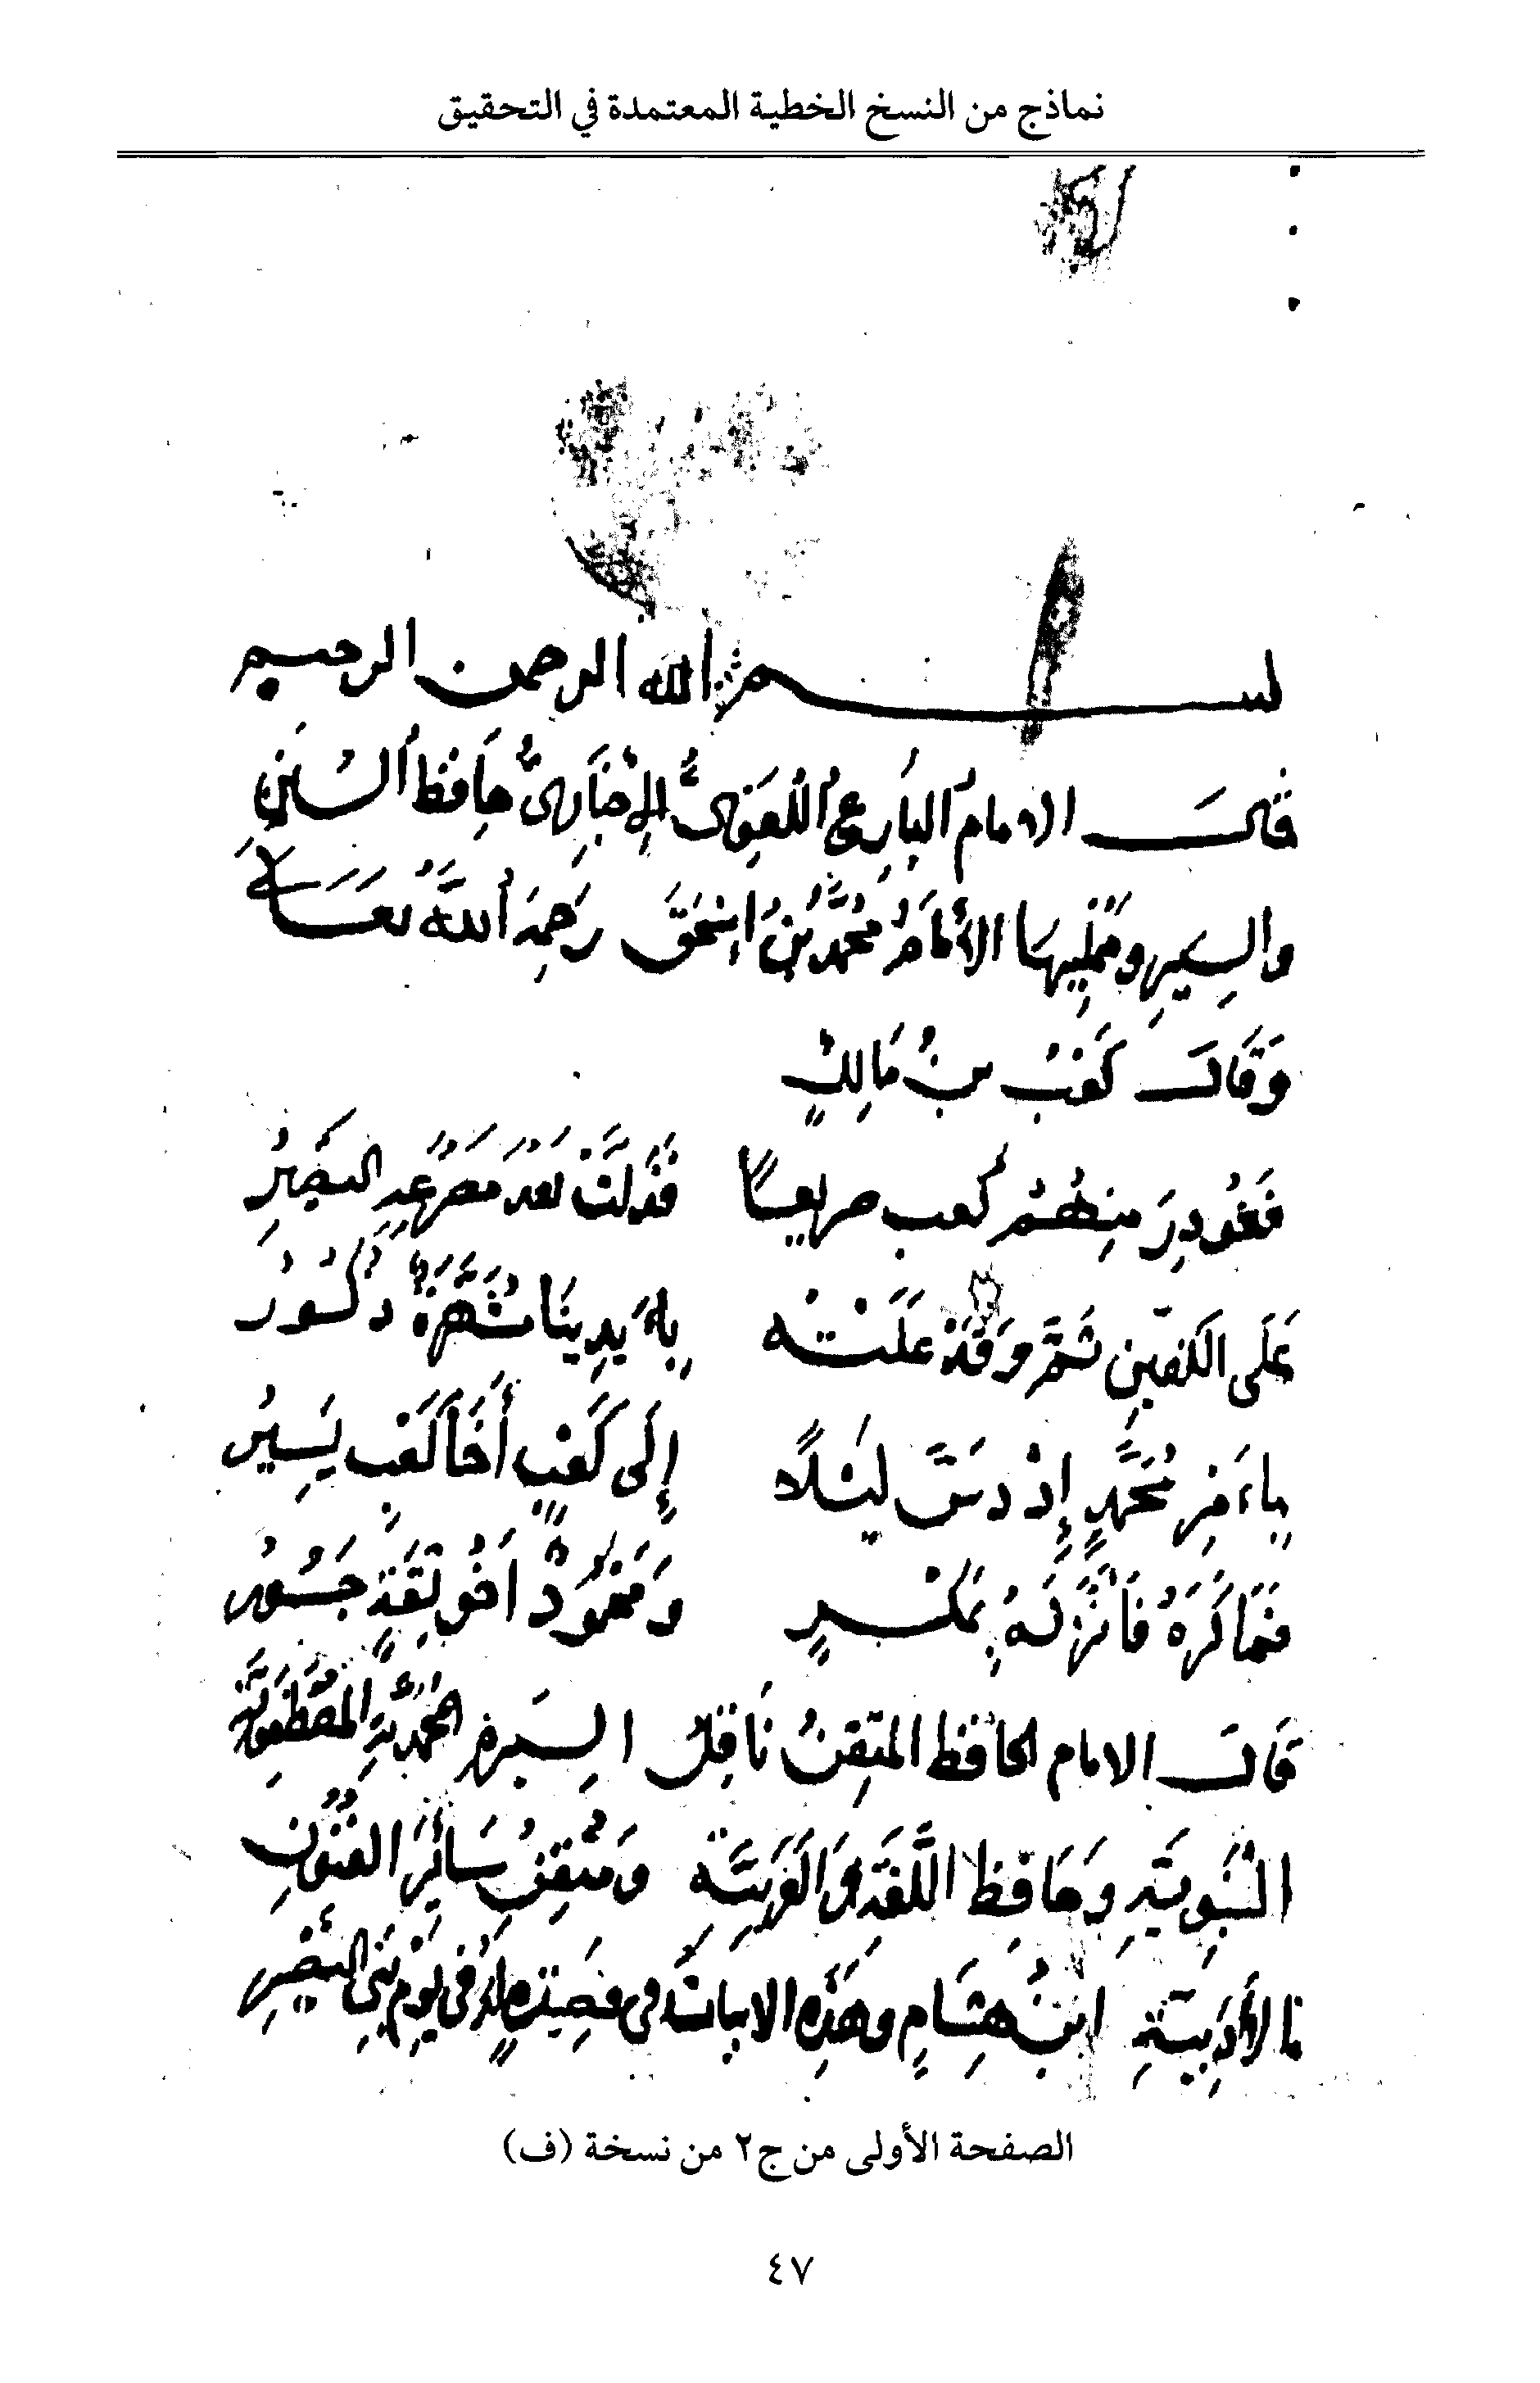 نماذج من النسخ الخطية المعتمدة في التحقيق
بسم الله الرحمن الرحيم
قال الإمام البارع اللغوي الإخباري حافظ السنن
والسير وممليها الإمام محمد بن إسحق رحمه الله تعالى
وقال كعب بن مالك
فغودر منهم كعب صريعا فذلت بعد مصرعه النضير
على الكفين ثم وقد علته بايدينا مشهرة ذكور
بامر محمد إذ دس ليلا إلى كعب أخا كعب يسير
فماكره فانزله بمكر ومحمود اخو ثقة جسور
قال الامام الحافظ المتقن ناقل السيرة المحمدية المصطفوية
النبوية وحافظ اللغة والعربية ومتقن سائر الفنون
الأدبية ابن هشام وهذه الابيات في قصيدة له في يوم بني النضير
الصفحة الأولى من ج٢ من نسخة (ف)
٤٧